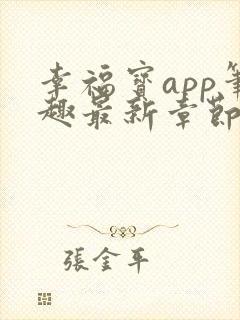 幸福寶app筆
趣最新章節
張金平